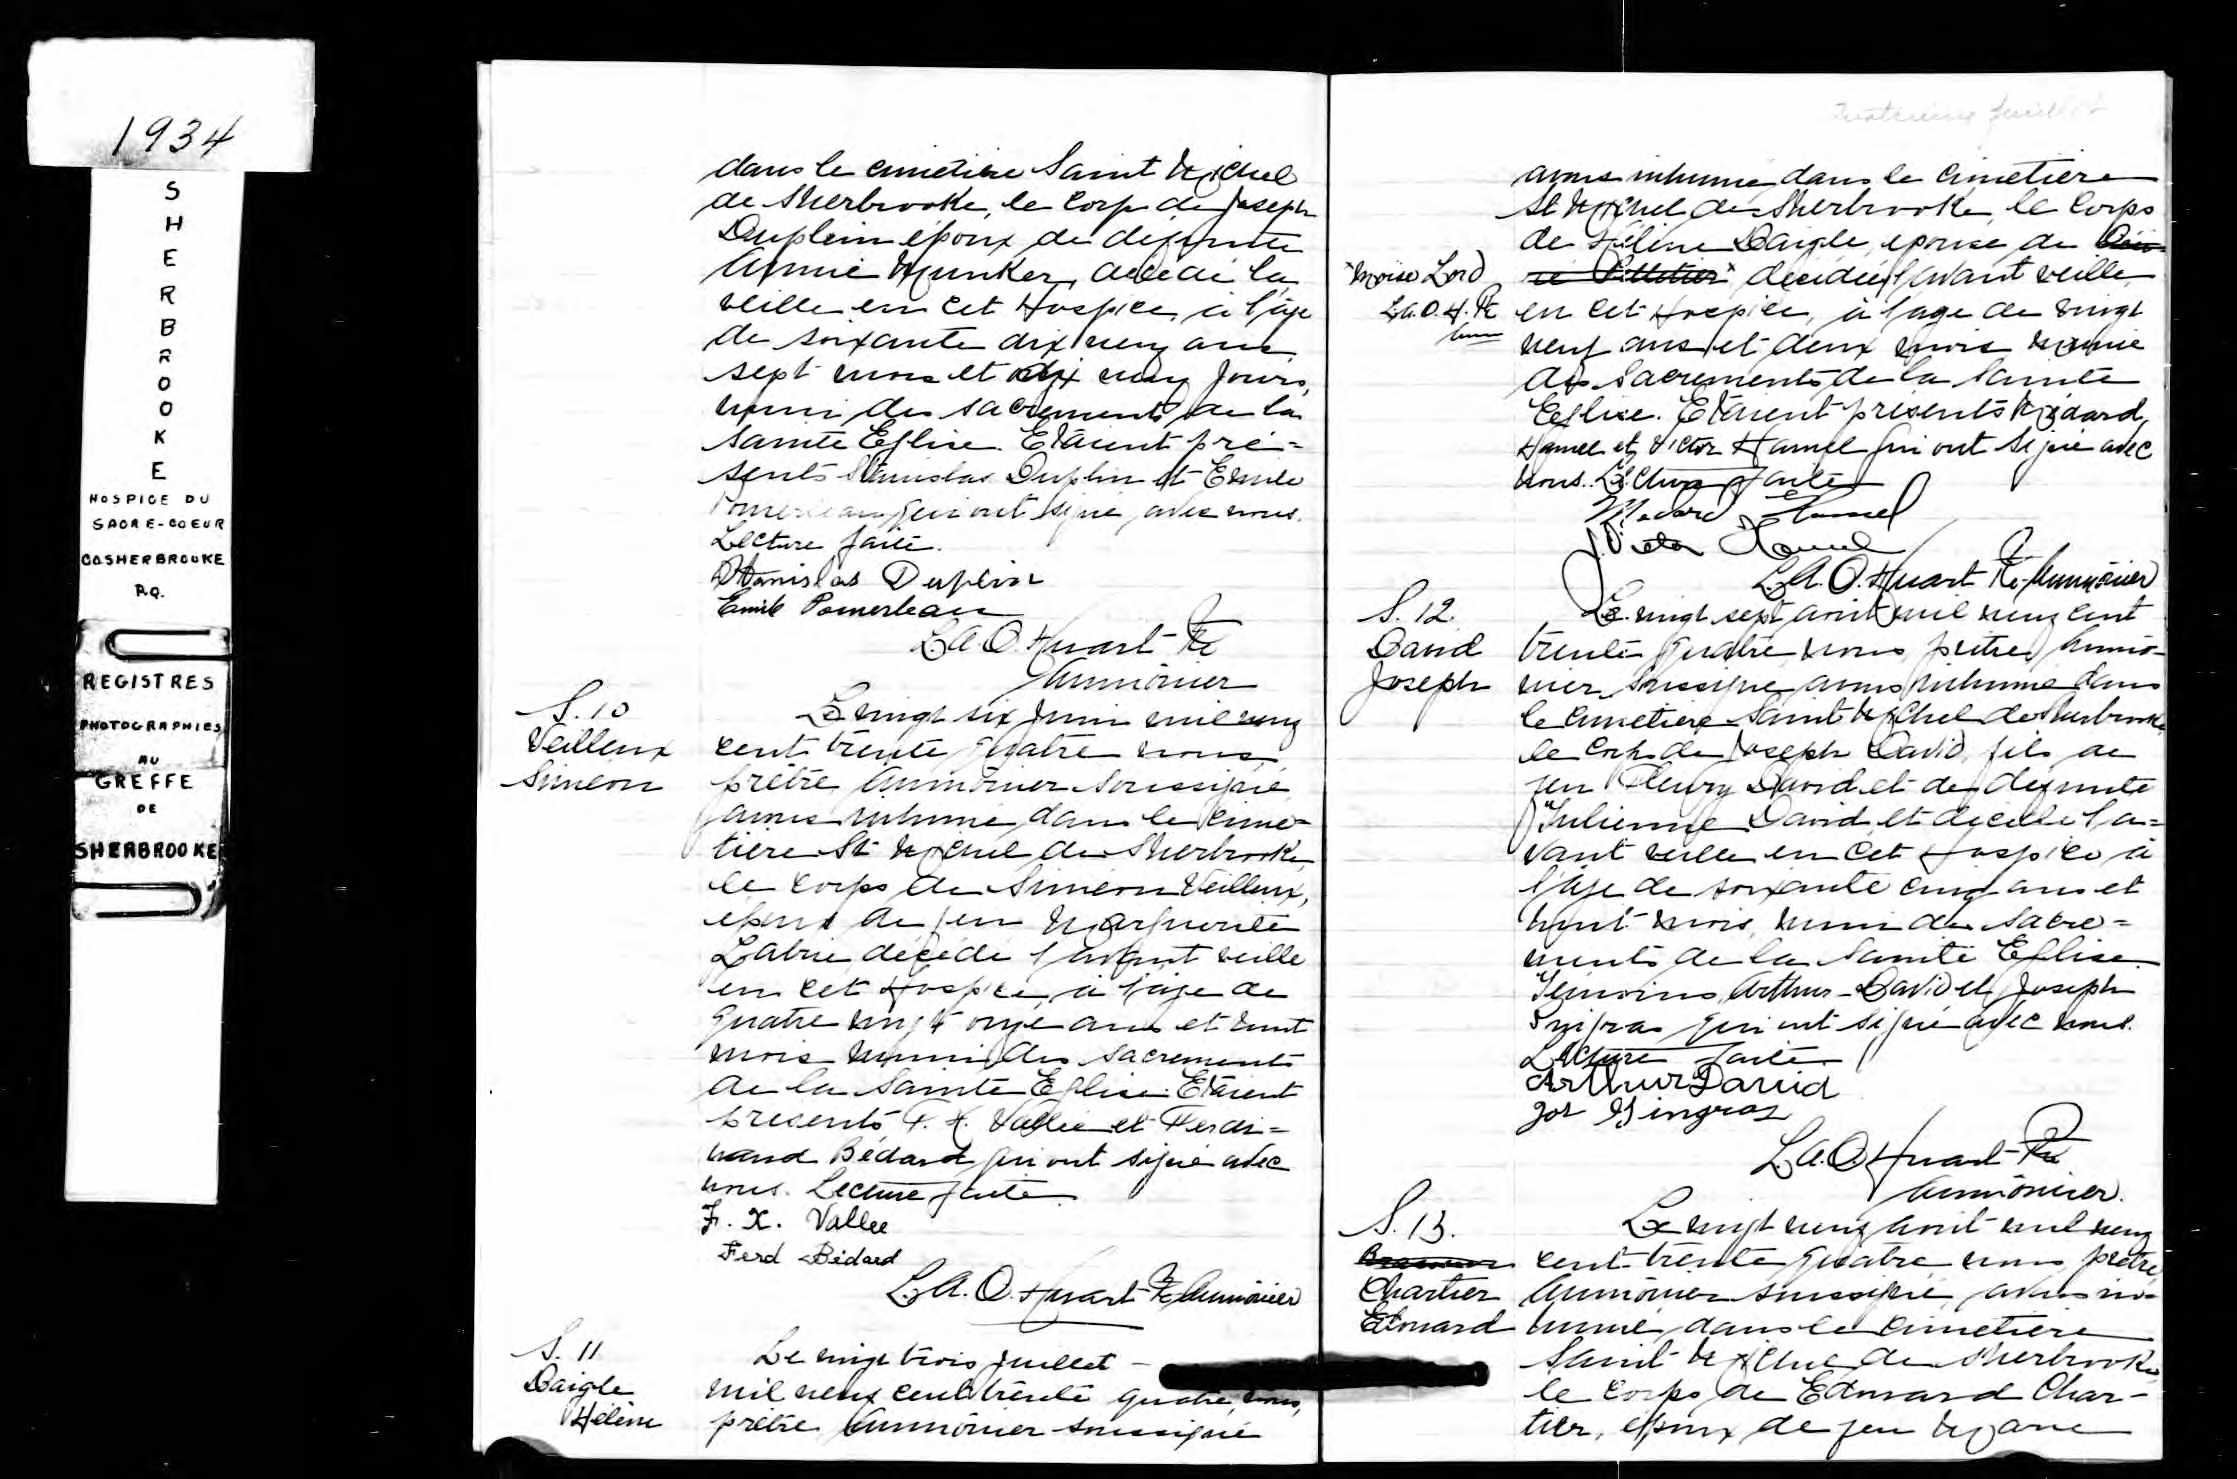 1934
S
H
E
R
B
R
O
O
K
E
HOSPICE DU
SACRE-COEUR
COSHERBROOKE
P.Q.
REGISTRES
PHOTOGRAPHIES
AU
GREFFE
DE
SHERBROOKE
dans le cimetière Saint Michel
de Sherbrooke, le corps de Joseph
Duplein époux de défunte
Annie Munker, décédé la
veille en cet Hospice, à l'âge
de soixante dix neuf ans
sept mois et dix neuf jours,
muni des sacrements de la
Sainte Eglise. Etaient pré=
sents Stanislas Duplin et Emile
Pomerleau qui ont signé avec nous.
Lecture faite.
Stanislas Duplin
Emile Pomerleau
L.A.O. Huart Ptr
Aumônier
S. 10
Veilleux
Siméon
Le vingt six juin mil neuf
cent trente quatre nous
prêtre Aumônier soussigné
avons inhumé dans le cime=
tière St Michel de Sherbrooke,
le corps de Siméon Veilleux,
époux de feu Marguerite
Labrie décédé l'avant veille
en cet Hospice, à l'âge de
quatre vingt onze ans et huit
mois muni des sacrements
de la Sainte Eglise. Etaient
présents F. X. Vallée et Ferdi=
nand Bédard qui ont signé avec
nous. Lecture faite.
F. X. Vallee
Ferd Bédard
L.A.O. Huart Ptr Aumônier
S. 11
Daigle
Hélène
Le vingt trois juillet -
mil neuf cent trente quatre, nous,
prêtre Aumônier soussigné
feuillet
avons inhumé dans le cimetière
St Michel de Sherbrooke, le corps
de Hélène Daigle, épouse de
"Moïse Lord
L.A.O.H. Ptr
décédée l'avant veille
en cet Hospice, à l'age de vingt
neuf ans et deux mois munie
des Sacrements de la Sainte
Eglise. Etaient présents Médard
Hamel et Victor Hamel qui ont signé avec
nous. Lecture faite
Médard Hamel
J. Victor Hamel
L.A.O. Huart Ptr-Aumônier
S. 12.
David
Joseph
Le vingt sept août mil neuf cent
trente quatre, nous, prêtre Aumô-
nier soussigné avons inhumé dans
le cimetière Saint Michel de Sherbrooke
le corps de Joseph David, fils de
feu Fleury David et de défunte
Julienne David, et décédé l'a=
vant veille en cet Hospice à
l'âge de soixante cinq ans et
huit mois, muni des Sacre=
ments de la Sainte Eglise.
Témoins, Arthur David et Joseph
Gingras qui ont signé avec nous.
Lecture faite
Arthur David
Jos Gingras
L.A.O. Huart Ptr
Aumônier.
S. 13.
Chartier
Edouard
Le vingt neuf août mil neuf
cent trente quatre nous, prêtre
Aumônier soussigné, avons in=
humé dans le cimetière
Saint Michel de Sherbrooke
le corps de Edouard Char-
tier, époux de feu Marie